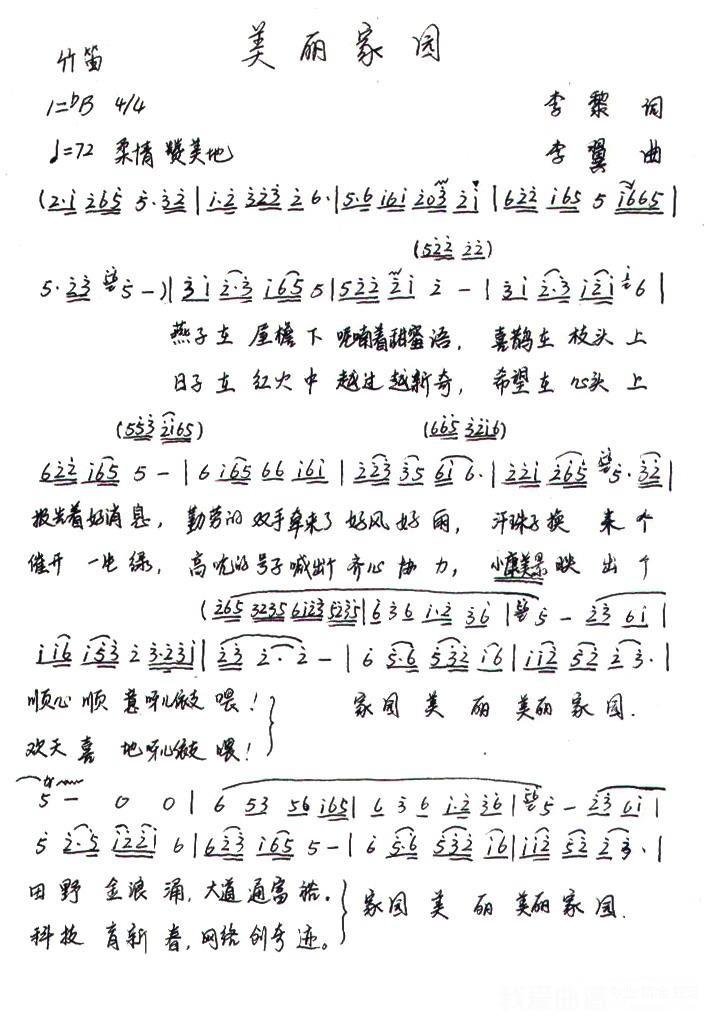 美丽家园
竹笛
1=♭B 4/4
李黎 词
♩=72 柔情 赞美地
李翼 曲
(2·i 265 5·32|i·2 323 26·|5·6 i6i 203 2i|622 i65 5 i665|
(522 22)
5·23 5-)|3i 2·3 i65 5|522 2i 2-|3i 2·3 i2i 6|
燕子在 屋檐 下 呢喃着甜蜜语, 喜鹊在 枝头 上
日子在 红火 中 越过越新奇, 希望在 心头 上
(553 2i65) (665 32i6)
622 i65 5-|6 i65 66 i6i|223 35 6i 6·|22i 265 5·32|
报告着好消息, 勤劳的 双手牵来了 好风 好雨, 汗珠子换 来 个
催开 一片 绿, 高吭的 号子喊出个 齐心 协 力, 小康美景 映 出 个
(265 3235 6i23 5235|636 i·2 36|5-23 6i|
ii6 i53 2 3·23i|23 2·2-|6 5·6 532 i6|ii2 52 23·|
顺心 顺 意呀儿依支 喂! 家园 美 丽 美丽 家 园.
欢天 喜 地呀儿依支 喂!
5 - 0 0|6 53 56 i65|6 3 6 i·2 36|5-23 6i|
5 2·5 i22i 6|623 i65 5-|6 5·6 532 i6|ii2 52 23·|
田野 金浪 涌,大道通富裕. 家园 美 丽 美丽 家 园.
科技 育新 春,网络创奇迹。